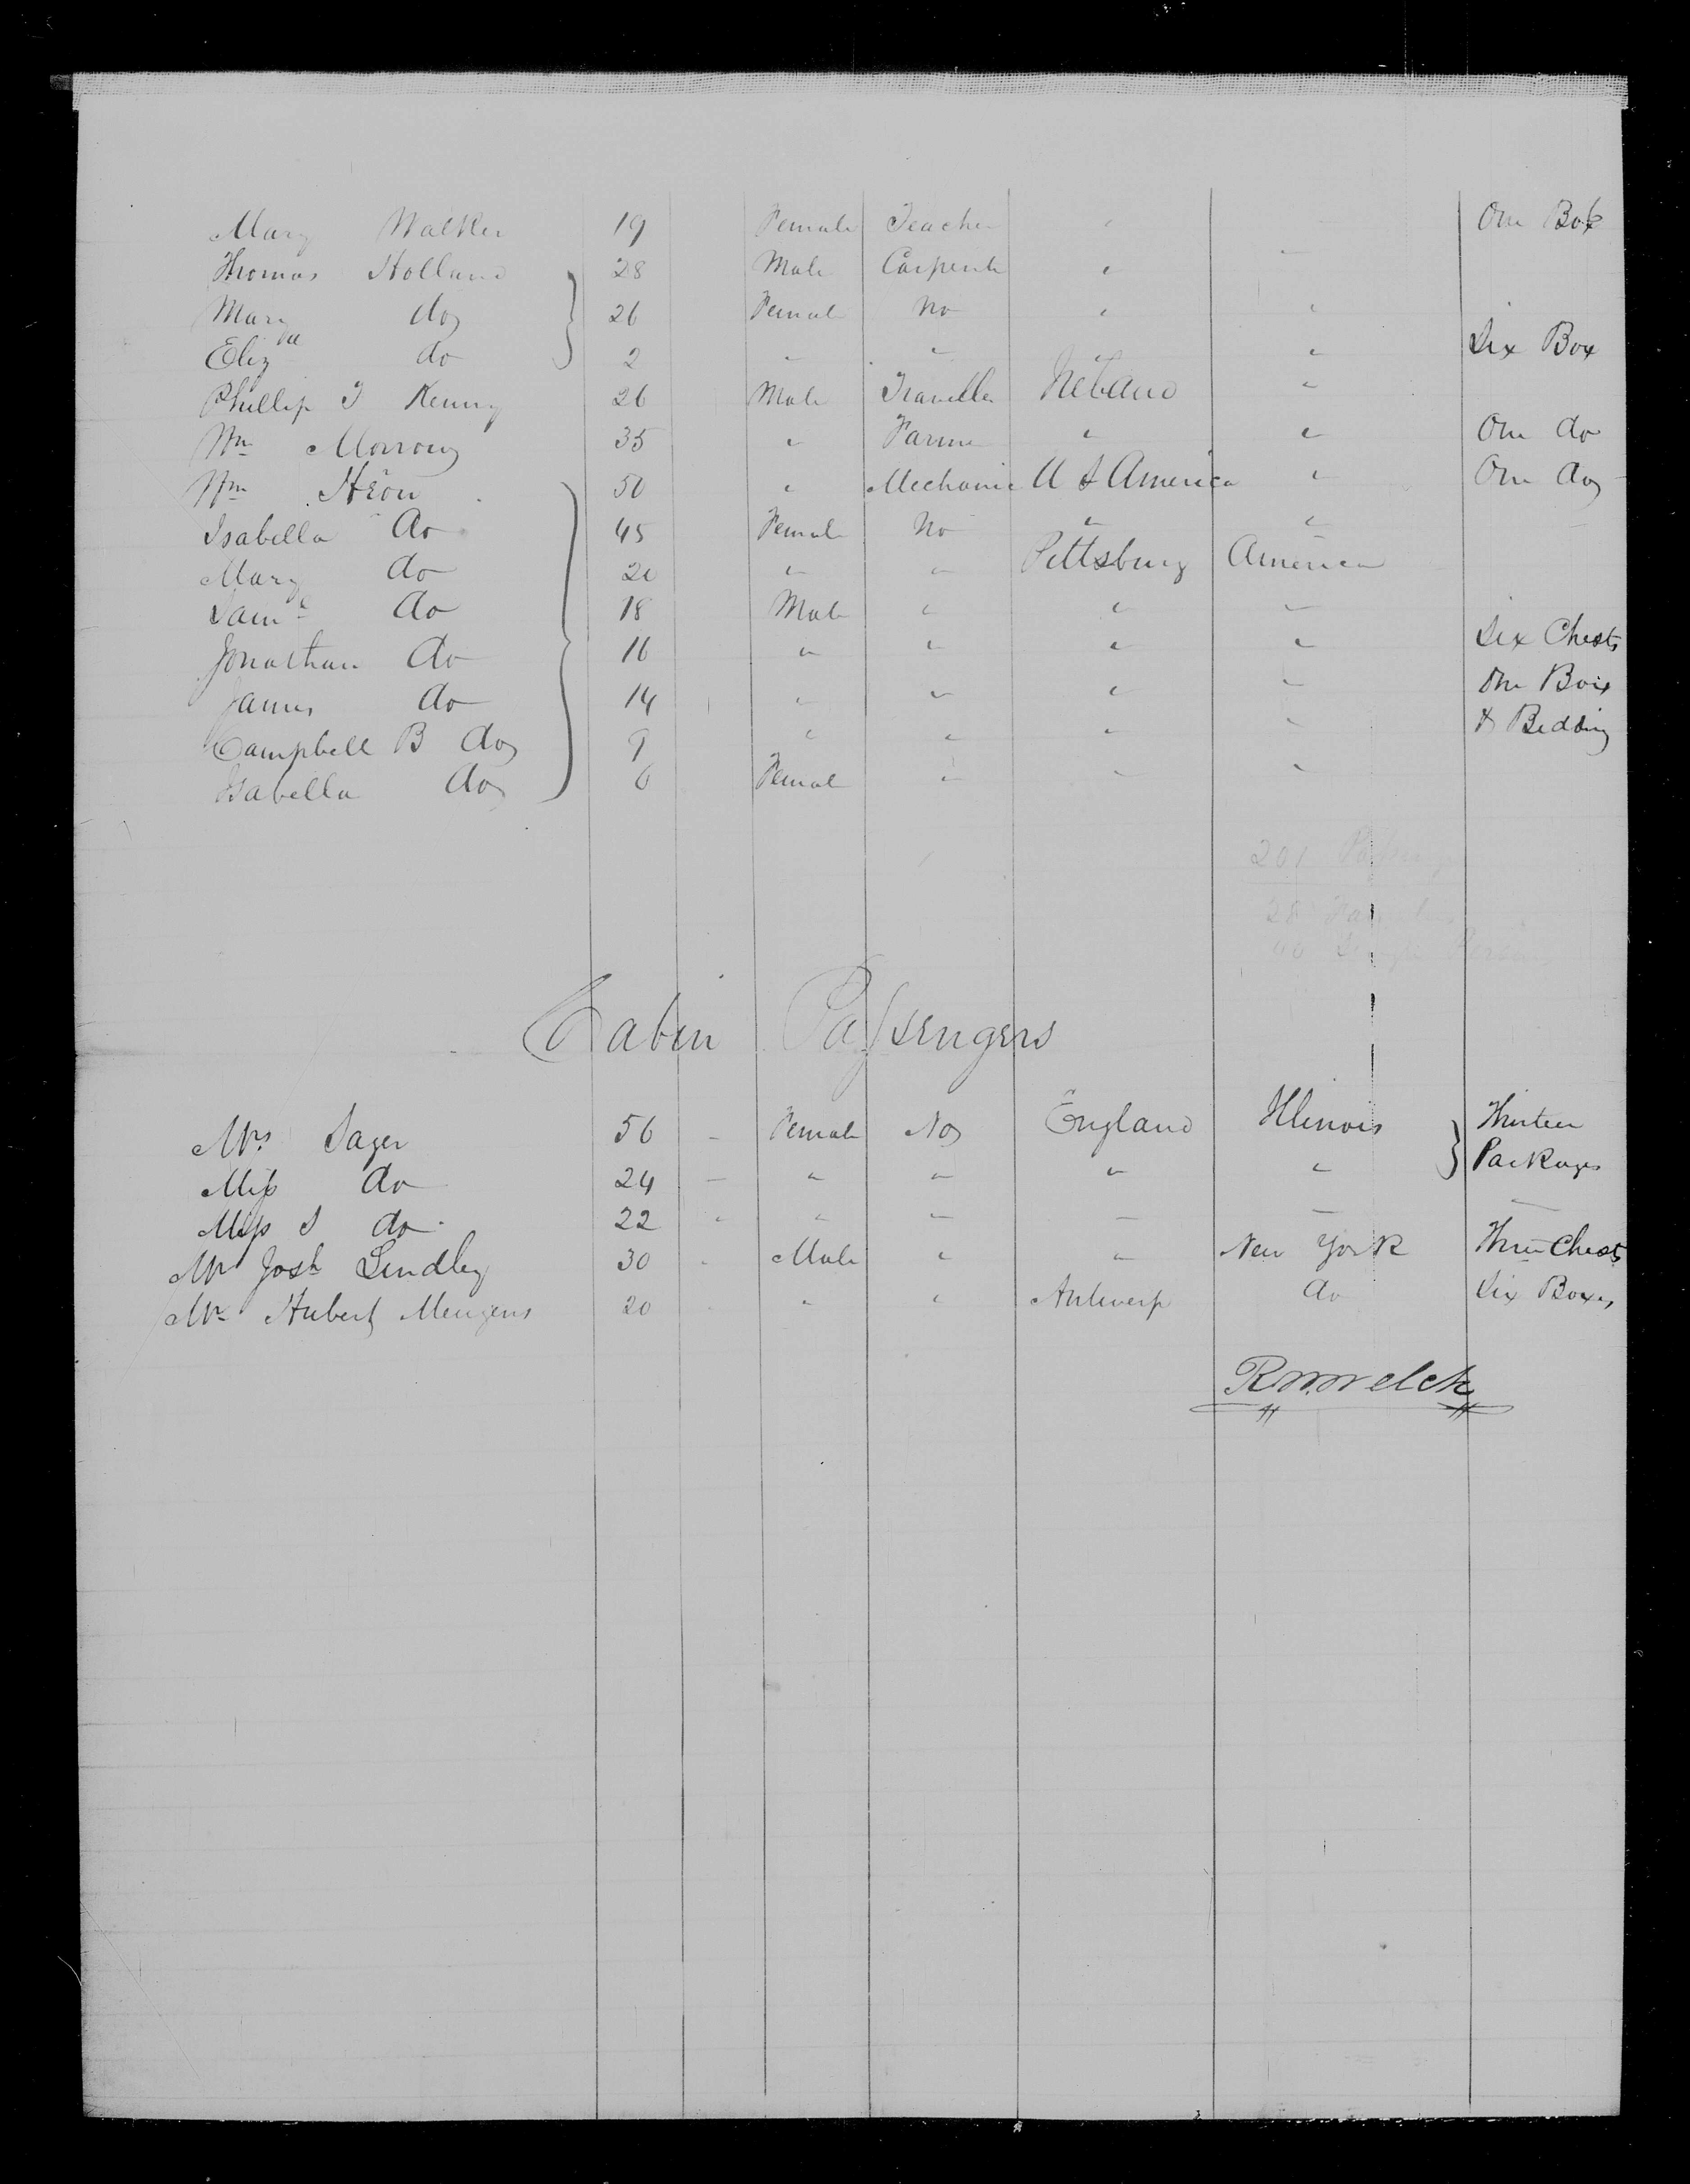 Mary Walker 19 Female Teacher " One Box
Thomas Holland 28 Male Carpenter " "
Mary do 26 Female No " "
Eliz a do 2 " " " " Six Box
Phillip I Kenny 26 Male Traveller Ireland "
Wm Morrow 35 " Farmer " " One do
Wm Heron 50 " Mechanic U S America " One do
Isabella do 45 Female No " "
Mary do 20 " " Pittsburg America
Saml do 18 Male " " "
Jonathan do 16 " " " " Six Chests
James do 14 " " " " One Box
Campbell B do 9 " " " " & Bedding
Isabella do 6 Female " " "
201
28
Cabin Passengers
Mrs Sager 56 - Female No England Illinois Thirteen
Miss do 24 - " " " " Packages
Miss S do 22 " " " " " "
Mr Josh Lindley 30 " Male " " New York Three Chests
Mr Hubert 20 " " " Antwerp do Six Boxes
R M Welch